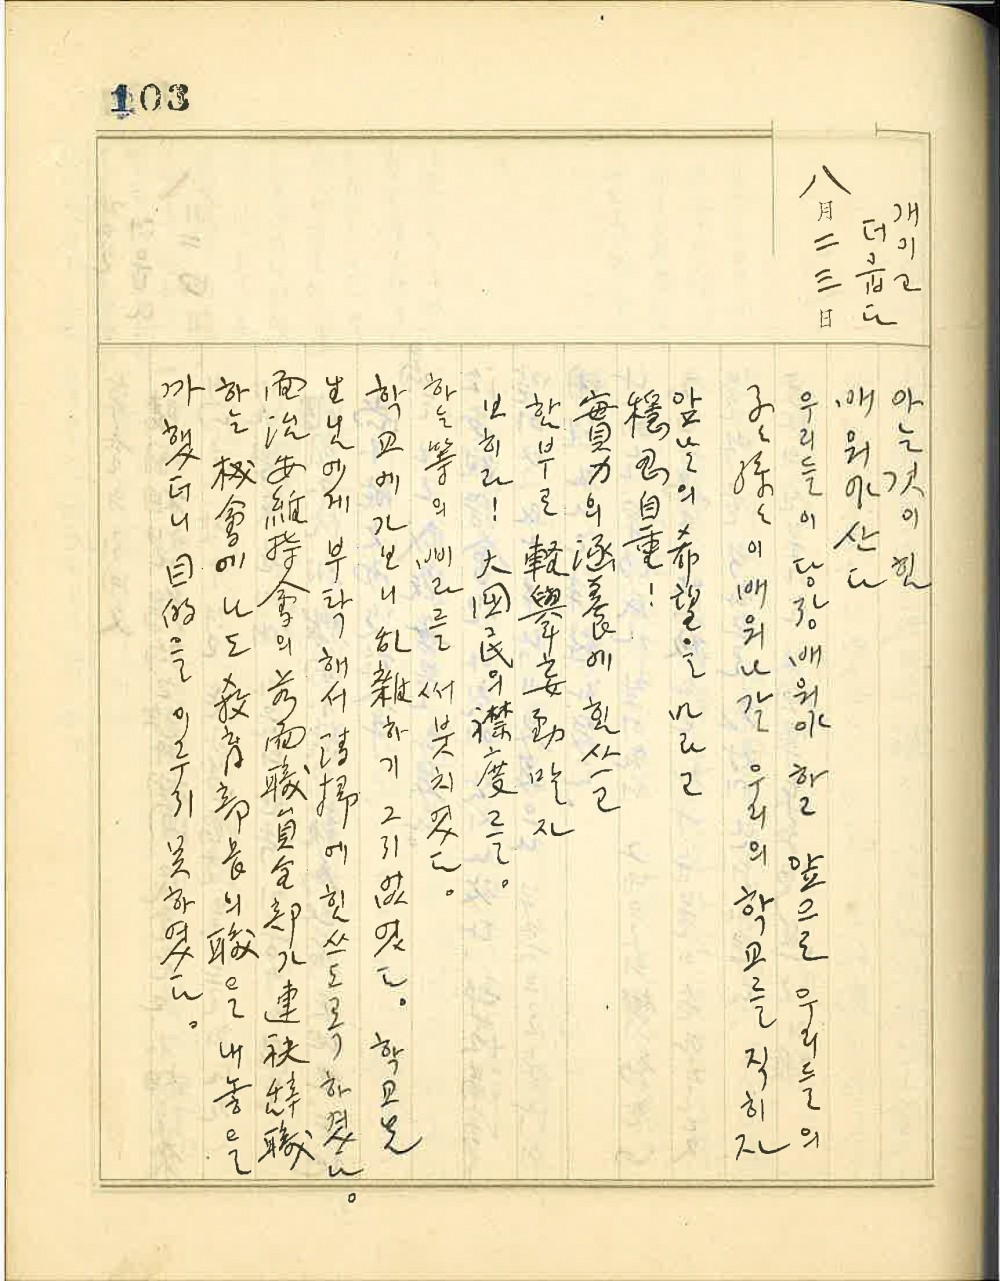 103
八月二三日
개이고
더웁다
아는것이힘
배워야산다
우리들이당장배워야할 앞으로 우리들의
子々孫々이배워나갈 우리의 학교를 직히자
앞날의 希望을 바라고
穩忍自重!
實力의 涵養에힘쓰고
함부로 輕擧妄動말자
보히라! 大國民의襟度를。
하는等의 삐라를 써붓치였다。
학교에가보니 亂雜하기 그지없었다。 학교先
生님에게 부탁해서 淸掃에 힘쓰도록 하였다。
面治安維持會의 前面職員全部가 連袂辭職
하는 機會에 나도 敎育部長의職을 내놓을
까 했더니 目的을 이루지 못하였다。